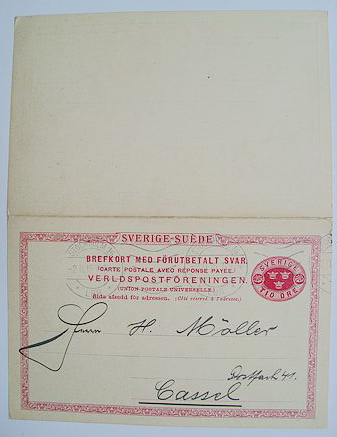 SVERIGE-SUÈDE
BREFKORT MED FÖRUTBETALT SVAR.
(CARTE POSTALE AVEC RÉPONSE PAYÉE.)
VERLDSPOSTFÖRENINGEN.
(UNION POSTALE UNIVERSELLE.)
Sida afsedd för adressen. (Côté réservé à l'adresse.)
SVERIGE
TIO ÖRE
Herrn H. Möller
Postfach 41.
Cassel